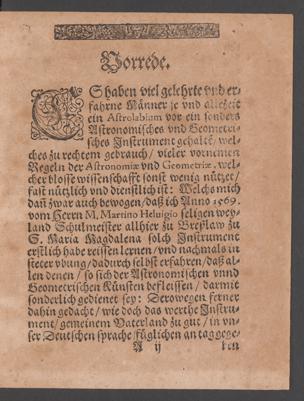 Vorrede.
ES haben viel gelehrte vnd er-
fahrne Männer je vnd allezeit
ein Astrolabium vor ein sonders
Astronomisches vnd Geometri-
sches Instrument gehalte͂/ wel-
ches zu rechtem gebrauch/ vieler vornemen
Regeln der Astronomiæ vnd Geometriæ, wel-
cher blosse wissenschafft sonst wenig nützet/
fast nützlich vnd dienstlich ist: Welchs mich
daß zwar auch bewogen/ daß ich Anno 1569.
vom Herrn M. Martino Heluigio seligen wey-
land Schulmeister allhier zu Breßlaw zu
S. Maria Magdalena solch Instrument
erstlich habe reissen lernen/ vnd nachmals in
steter vbung/ dadurch selbst erfahren/ daß al-
len denen/ so sich der Astronomischen vnnd
Geometrischen Künsten befleissen/ darmit
sonderlich gedienet sey: Derowegen ferner
dahin gedacht/ wie doch das werthe Instru-
ment/ gemeinem Vaterland zu gut/ in vn-
ser Deutschen sprache füglichen an tag gege-
A ij ben